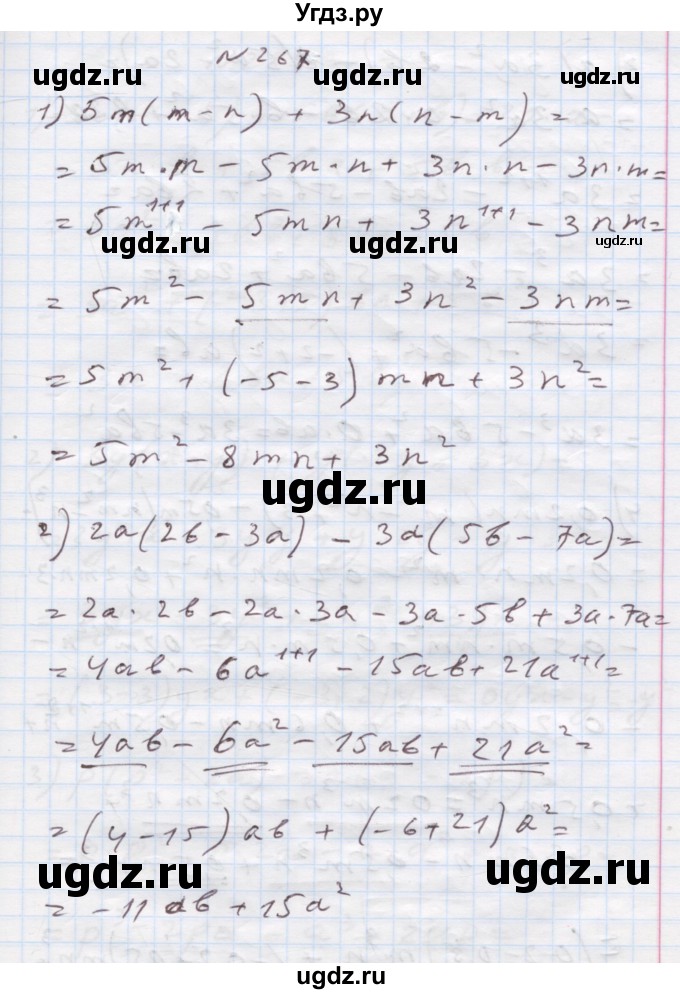 Угдз.ру
№ 267
ugdz.ru ugdz.ru
1) 5m(m-n) + 3n(n-m) =
= 5m·m - 5m·n + 3n·n - 3n·m =
= 5m¹⁺¹ - 5mn + 3n¹⁺¹ - 3nm =
ugdz.ru ugdz.ru ugdz.ru
= 5m² - 5mn + 3n² - 3nm =
= 5m² + (-5-3) mn + 3n² =
= 5m² - 8mn + 3n²
ugdz.ru
2) 2a(2b - 3a) - 3a(5b - 7a) =
= 2a·2b - 2a·3a - 3a·5b + 3a·7a =
= 4ab - 6a¹⁺¹ - 15ab + 21a¹⁺¹ =
= 4ab - 6a² - 15ab + 21a² =
= (4-15)ab + (-6+21)a² =
ugdz.ru ugdz.ru
= -11ab + 15a²
ugdz.ru
ugdz.ru